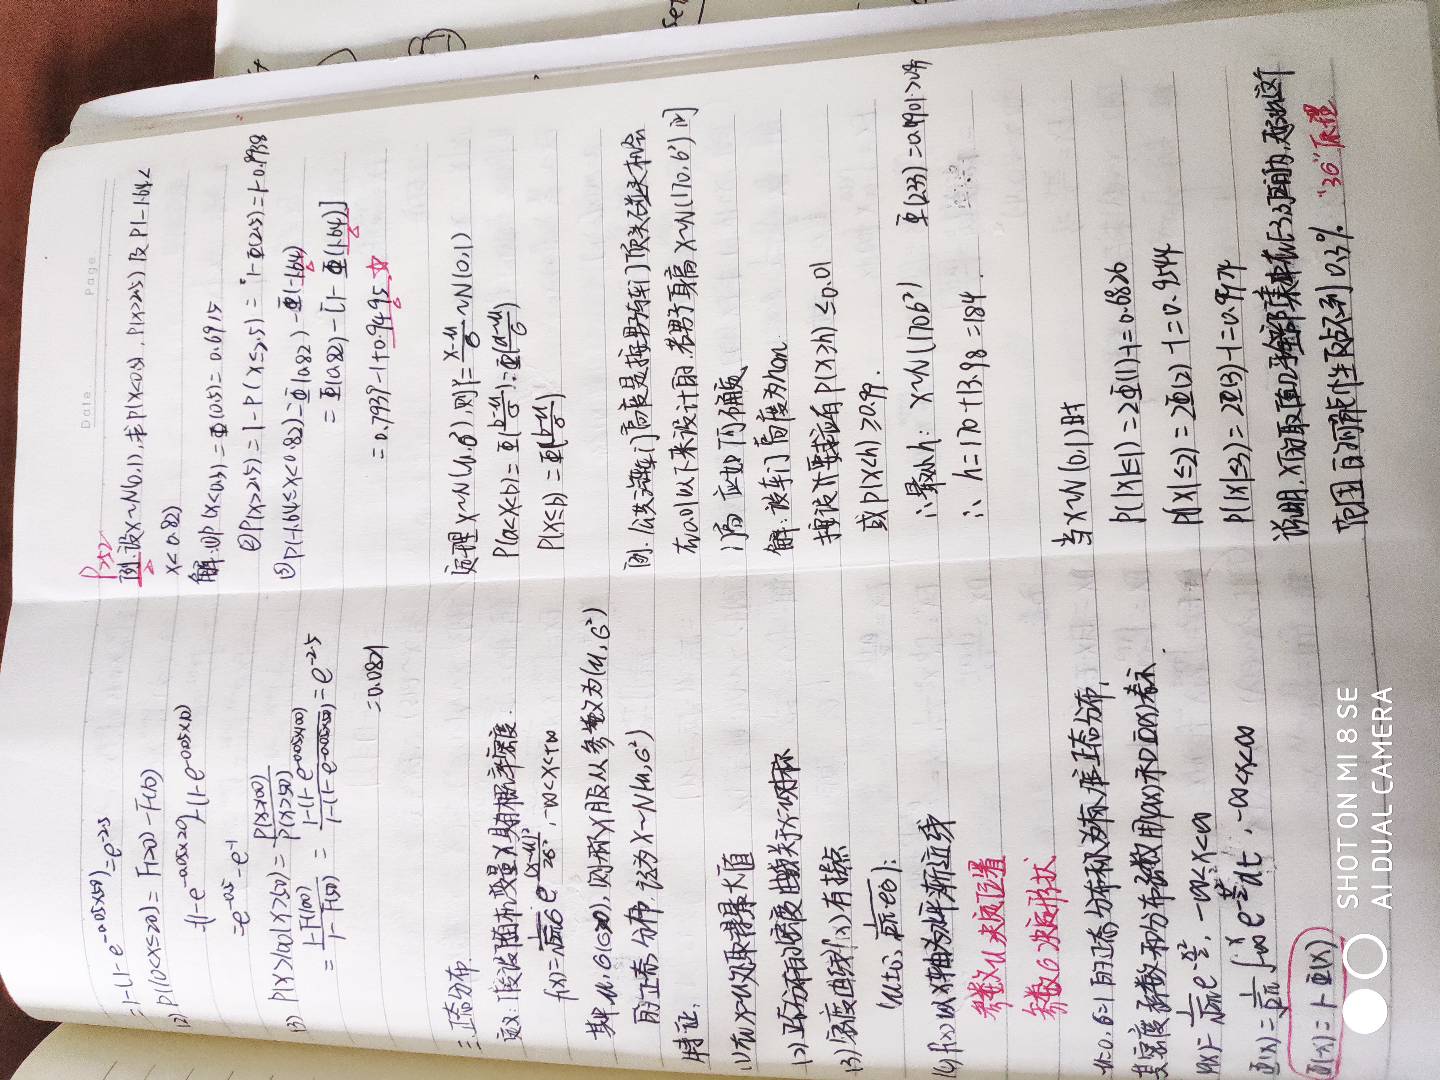 =1-(1-e^{-0.05×50})=e^{-2.5}
(2) P(10<X≤20)=F(20)-F(10)
=(1-e^{-0.05×20})-(1-e^{-0.05×10})
=e^{-0.5}-e^{-1}
(3) P(X>100|X>50)=\frac{P(X>100)}{P(X>50)}
=\frac{1-F(100)}{1-F(50)}=\frac{1-(1-e^{-0.05×100})}{1-(1-e^{-0.05×50})}=e^{-2.5}
=0.0821
三.正态分布.
定义:假设随机变量X具有概率密度.
f(x)=\frac{1}{\sqrt{2π}σ}e^{-\frac{(x-μ)^2}{2σ^2}},-∞<x<+∞
其中μ,σ(σ>0),则称X服从参数为(μ,σ²)
的正态分布 记为X~N(μ,σ²)
特征:
(1)在x=μ处取得最大值
(2)正态分布的密度曲线关于x=μ对称
(3)密度曲线f(x)有拐点
(μ±σ,\frac{1}{\sqrt{2π·e}σ});
(4)f(x)以X轴为水平渐近线
参数μ决定位置
参数σ决定形状
μ=0,σ=1的正态分布称为标准正态分布,
其密度函数和分布函数用φ(x)和Φ(x)表示
φ(x)=\frac{1}{\sqrt{2π}}e^{-\frac{x^2}{2}},-∞<x<∞
Φ(x)=\frac{1}{\sqrt{2π}}∫_{-∞}^{x}e^{-\frac{t^2}{2}}dt,-∞<x<∞
Φ(-x)=1-Φ(x)
Date Page
P252
例.设X~N(0,1),求P(X<0.5),P(X>2.5)及P(-1.64<
X<0.82)
解:①P(X<0.5)=Φ(0.5)=0.6915
②P(X>2.5)=1-P(X≤2.5)=1-Φ(2.5)=1-0.9938
③P(-1.64≤X<0.82)=Φ(0.82)-Φ(-1.64)
=Φ(0.82)-[1-Φ(1.64)]
=0.7939-1+0.9495☆
定理X~N(μ,σ²),则Y=\frac{X-μ}{σ}~N(0,1)
P(a<X<b)=Φ(\frac{b-μ}{σ})-Φ(\frac{a-μ}{σ})
P(X≤b)=Φ(\frac{b-μ}{σ})
例.公共汽车车门高度是按男子与车门顶头碰头机会
在0.01以下来设计的.若男子身高X~N(170,6²)问
门高应如何确定
解:设车门高度为hcm
按设计要求应有P(X≥h)≤0.01
或P(X<h)≥0.99.
∴最小h:X~N(170 6²) Φ(2.33)=0.9901>0.99
∴h=170+13.98=184.
当X~N(0,1)时
P(|X|≤1)=2Φ(1)-1=0.6826
P(|X|≤2)=2Φ(2)-1=0.9544
P(|X|≤3)=2Φ(3)-1=0.9974
说明,X的取值几乎全部集中在[-3,3]区间内,超出这个
范围的可能性反占不到0.3% "3σ"原理
SHOT ON MI 8 SE
AI DUAL CAMERA